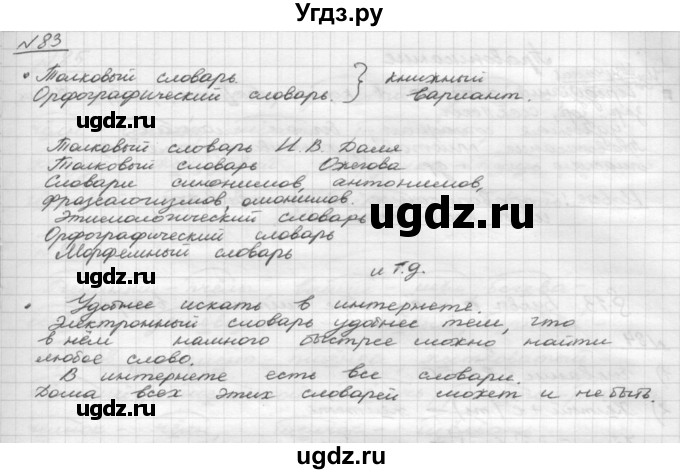 Угдз.ру
№83
• Толковый словарь. } книжный
Орфографический словарь. } вариант.
ugdz.ru
Толковый словарь И. В. Даля
Толковый словарь Ожегова
Словари синонимов, антонимов,
фразеологизмов, омонимов.
Этимологический словарь
ugdz.ru
Орфографический словарь
ugdz.ru
Морфемный словарь
и т.д.
• Удобнее искать в интернете.
Электронный словарь удобнее тем, что
в нём намного быстрее можно найти
любое слово.
В интернете есть все словари.
Дома всех этих словарей может и не быть.
ugdz.ru
ugdz.ru
Угдз.ру